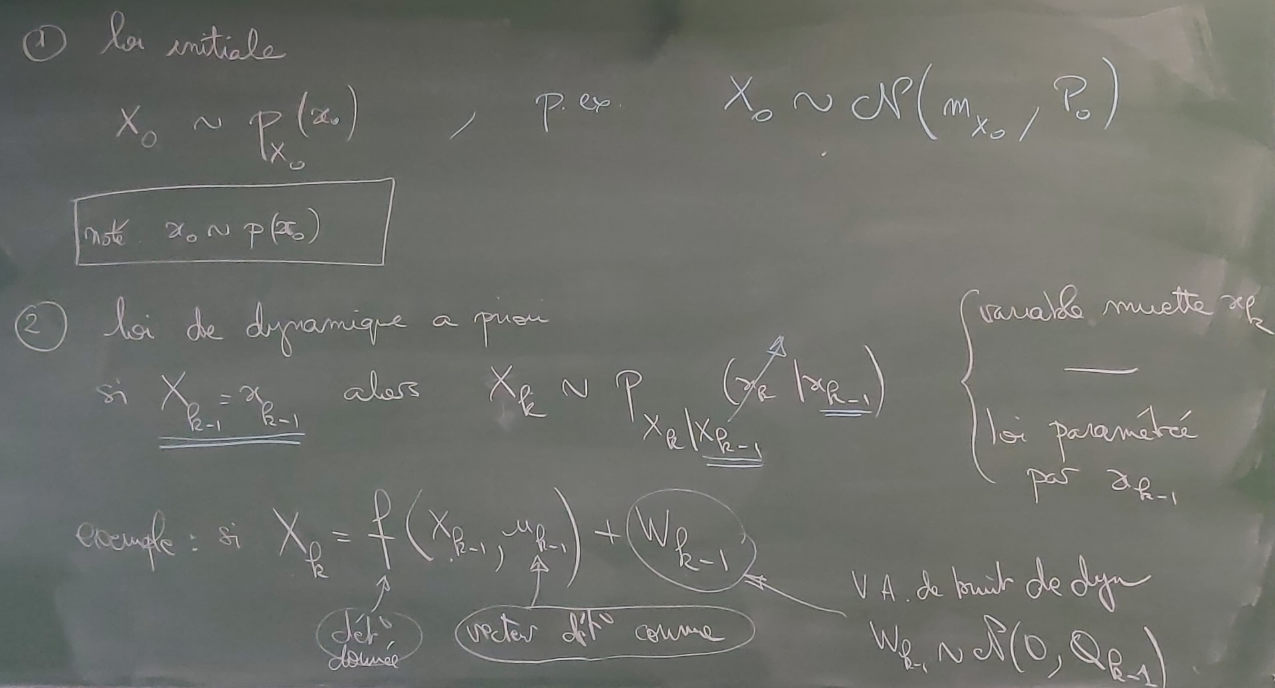 ① loi initiale
X₀ ~ p_{X₀}(x₀) , p. ex. X₀ ~ N(m_{X₀}, P₀)
noté x₀ ~ p(x₀)
② loi de dynamique a priori
si X_{k-1} = x_{k-1} alors X_k ~ p_{X_k|X_{k-1}}(x_k | x_{k-1})
{ variable muette x_k
—
loi paramétrée
par x_{k-1}
exemple : si X_k = f(X_{k-1}, u_{k-1}) + W_{k-1}
dét° donnée
vecteur dét° connue
V.A. de bruit de dyn
W_{k-1} ~ N(0, Q_{k-1})